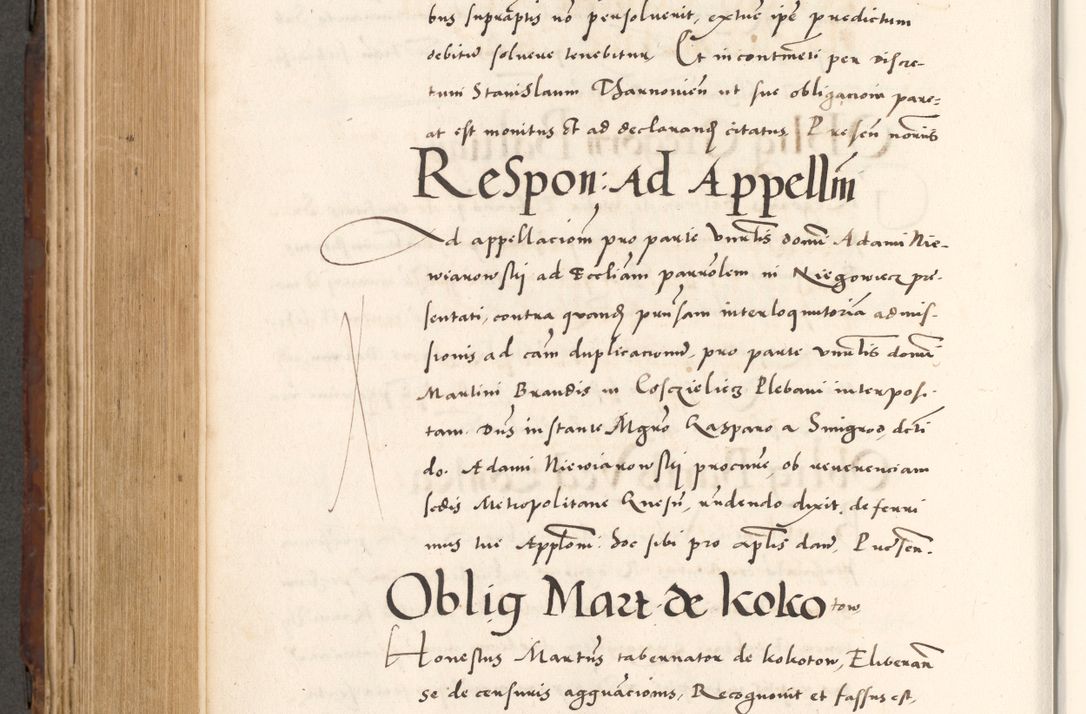 bus supraptis nō persolverit, extūc ipē predictum
debitū solvere tenebitur Et in contineti per discre-
tum Stanislaum Tharnovień ut sue obligacioni pare-
at est monitus Et ad declarand citatus Presen notriis
Respon: Ad Appellm
Ad appellaciom pro parte Vnrlis domi Adami Nie-
wiarowskij ad Eccliam parrolem in Niegowicz pre-
sentati, contra quand prusam interloquutoria admis-
sionis ad cam duplicacionū, pro parte vnrlis domi
Martini Brandis in Cosczielicz Plebani interposi-
tam. Dns instante Mgro Gasparo a Smigrod, dcti
do. Adami Niewiarowskij procure, ob reverenciam
sedis Metropolitane Gnesn, rndendo dixit, deferri
mus tue Applomi: hoc sibi pro aplis dam, Prsen.
Oblig Mart de koko tow
Honestus Martins tabernator de kokotow, Eliberan
se de censuris aggvacionis, Recognovit et fassus est,